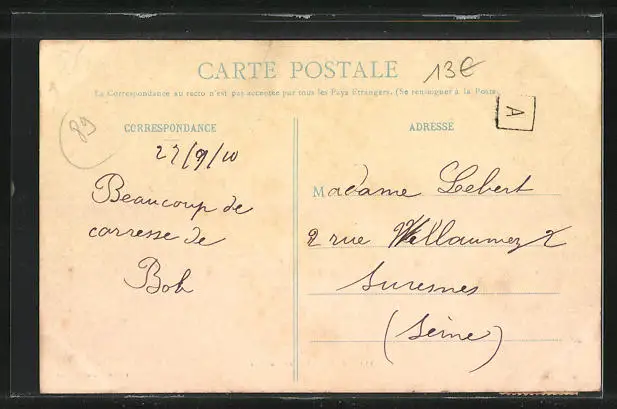 CARTE POSTALE
13€
La Correspondance au recto n'est pas acceptée par tous les Pays Etrangers. (Se renseigner à la Poste.
A
89
CORRESPONDANCE
ADRESSE
27/9/10
Beaucoup de
carresse de
Bob
Madame Lebert
2 rue Willaumez 2
Suresnes
(Seine)